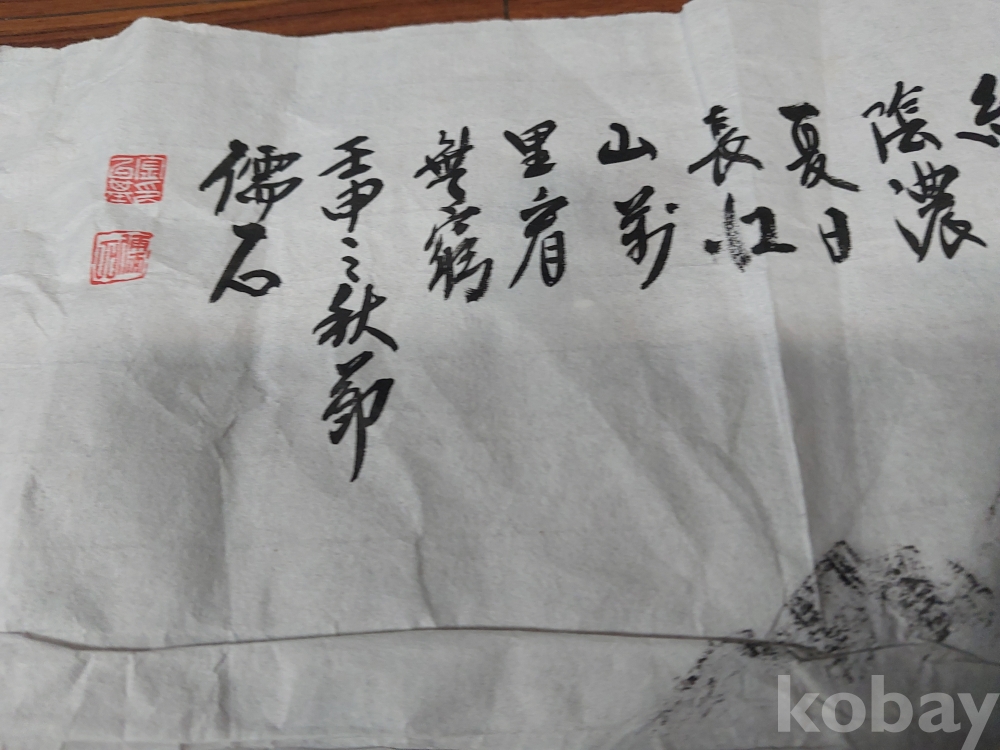 陰濃
夏日
長江
山萬
里看
無窮
壬申之秋節
儒石
kobay